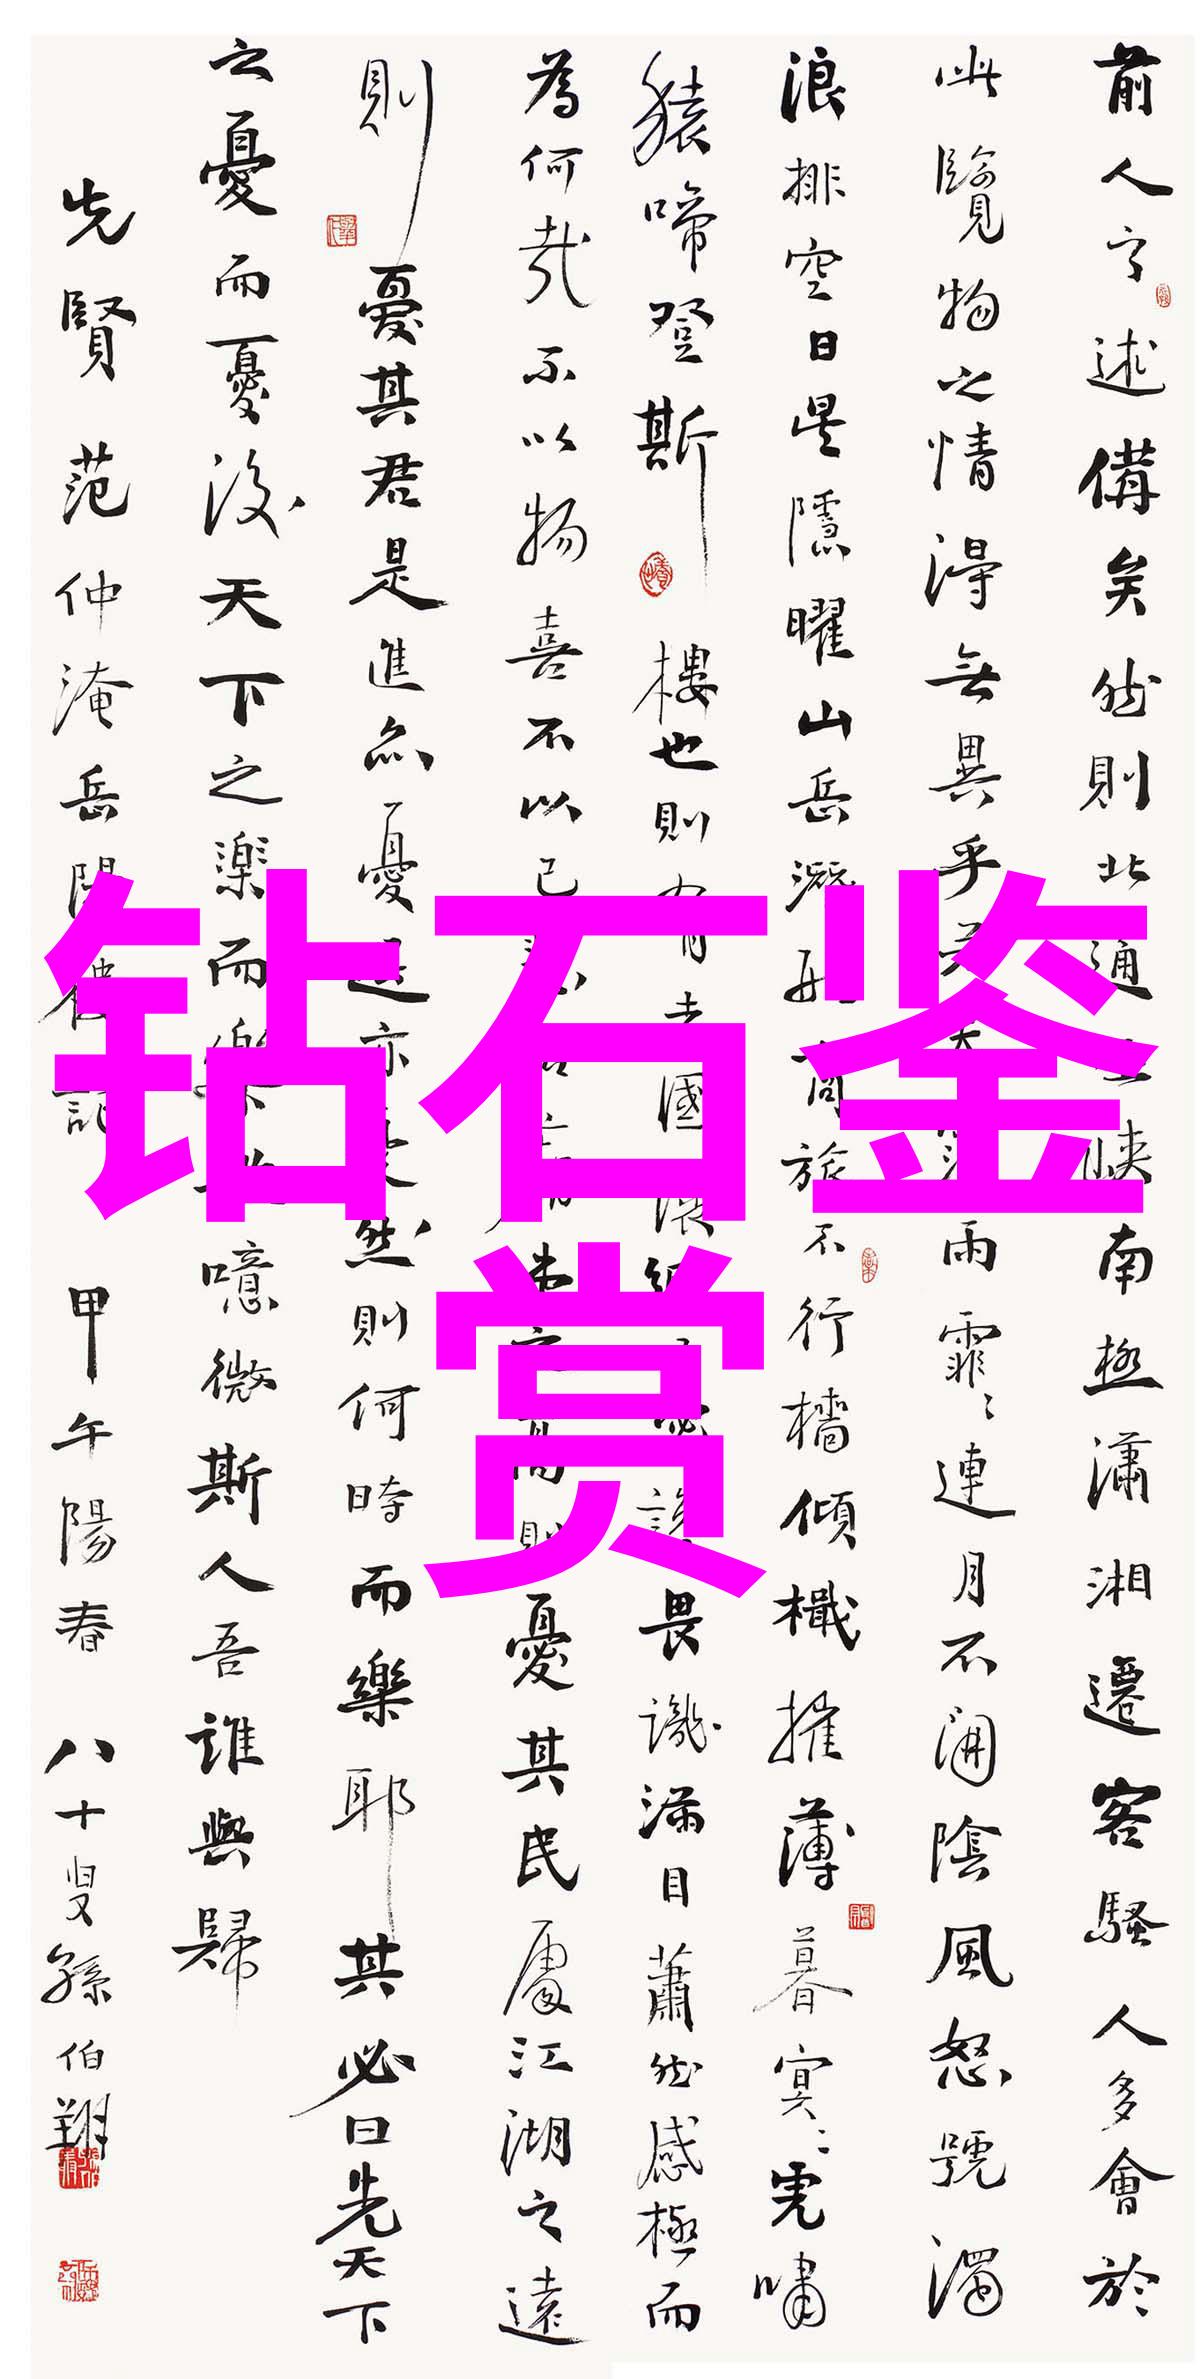 前人之述備矣然則北通巫峽南極瀟湘遷客騷人多會於
此覽物之情得無異乎若夫淫雨霏霏連月不開陰風怒號濁
浪排空日星隱曜山岳潛形商旅不行檣傾檝摧薄暮冥冥虎嘯
猿啼登斯樓也則有去國懷鄉憂讒畏譏滿目蕭然感極而
為何哉不以物喜不以己悲居廟堂之高則憂其民處江湖之遠
則憂其君是進亦憂退亦憂然則何時而樂耶其必曰先天下
之憂而憂後天下之樂而樂乎噫微斯人吾誰與歸
先賢范仲淹岳陽樓記 甲午陽春 八十叟孫伯翔
钻石鉴
赏